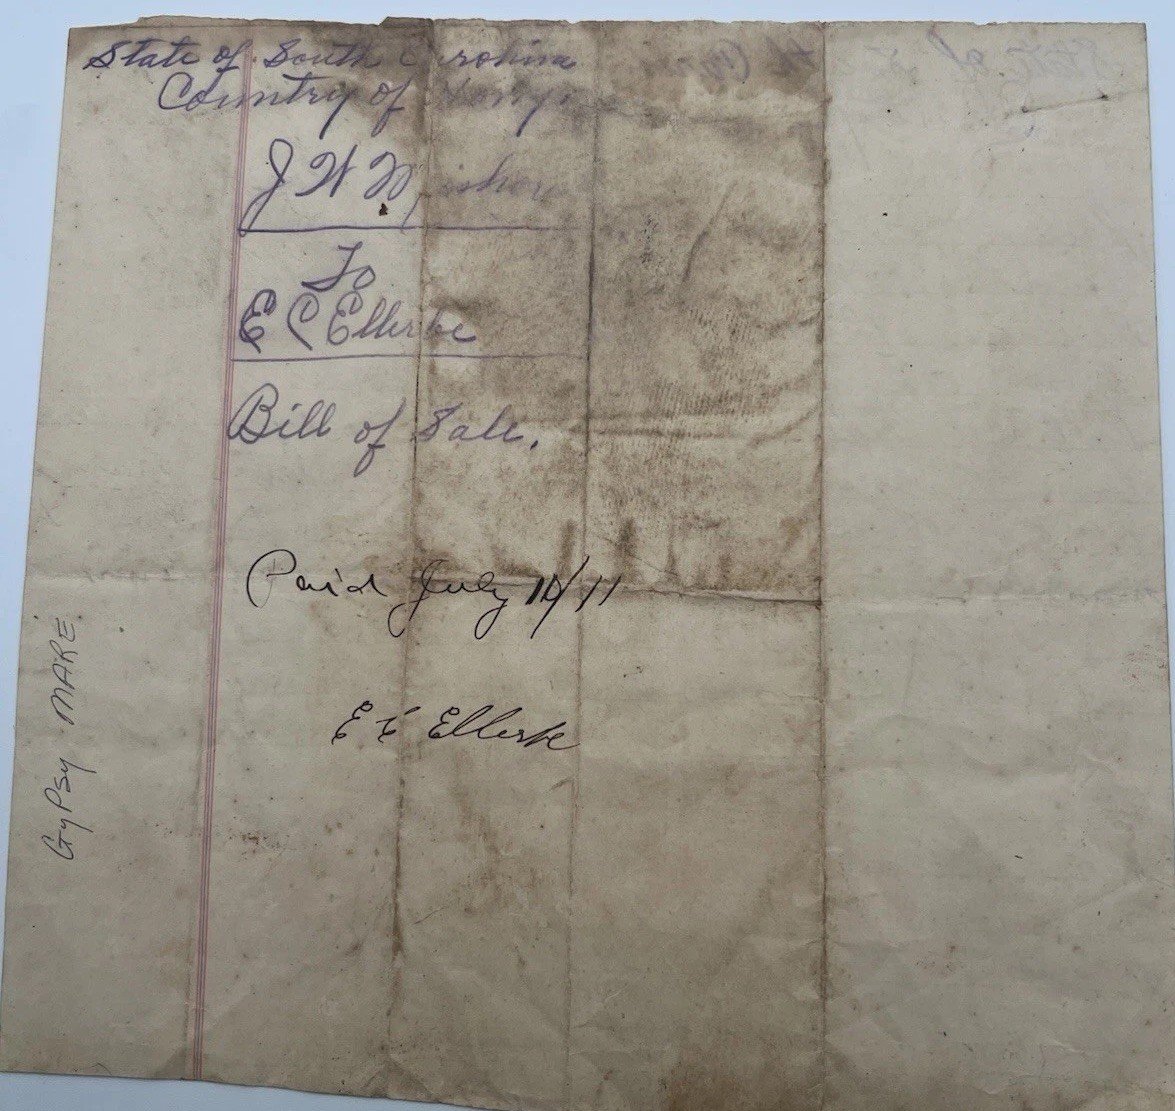 State of South Carolina
Country of Horry
J W Mishow
To
E C Ellerbe
Bill of Sale.
Paid July 10/11
E C Ellerbe
GYPSY MARE.